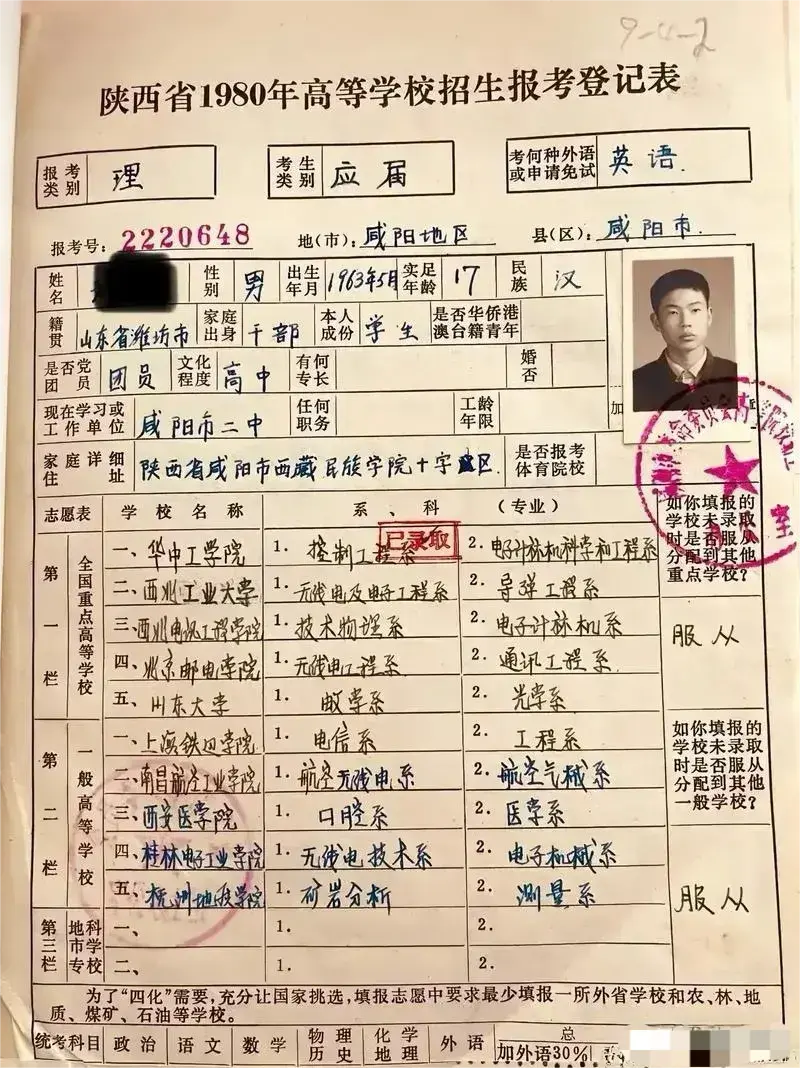 9-4-2
陕西省1980年高等学校招生报考登记表
报考类别 理 考生类别 应届 考何种外语或申请免试 英语.
报考号: 2220648 地(市): 咸阳地区 县(区): 咸阳市.
姓名 性别 男 出生年月 1963年5月 实足年龄 17 民族 汉
籍贯 山东省潍坊市 家庭出身 干部 本人成份 学生 是否华侨港澳台籍青年
是否党团员 团员 文化程度 高中 有何专长 婚否
现在学习或工作单位 咸阳市二中 任何职务 工龄年限 加
家庭详细住址 陕西省咸阳市西藏民族学院十字区. 是否报考体育院校
志愿表 学校名称 系、科(专业) 如你填报的学校未录取时是否服从分配到其他重点学校?
已录取
第一栏 全国重点高等学校
一、华中工学院 1. 控制工程系 2. 电子计祘机科学和工程系
二、西北工业大学 1. 无线电及电子工程系 2. 导弹工程系
三、西北电讯工程学院 1. 技术物理系 2. 电子计祘机系 服从
四、北京邮电学院 1. 无线电工程系. 2. 通讯工程系
五、山东大学 1. 数学系 2. 光学系
第二栏 一般高等学校 如你填报的学校未录取时是否服从分配到其他一般学校?
一、上海铁道学院 1. 电信系 2. 工程系
二、南昌航空工业学院 1. 航空无线电系 2. 航空气械系
三、西安医学院 1. 口腔系 2. 医学系
四、桂林电子工业学院 1. 无线电技术系 2. 电子机械系
五、地质学院 1. 矿岩分析 2. 测量系 服从
第三栏 地市科学专校
一、 1. 2.
二、 1. 2.
为了“四化”需要,充分让国家挑选,填报志愿中要求最少填报一所外省学校和农、林、地
质、煤矿、石油等学校。
统考科目 政治 语文 数学 物理历史 化学地理 外语 总
加外语30%